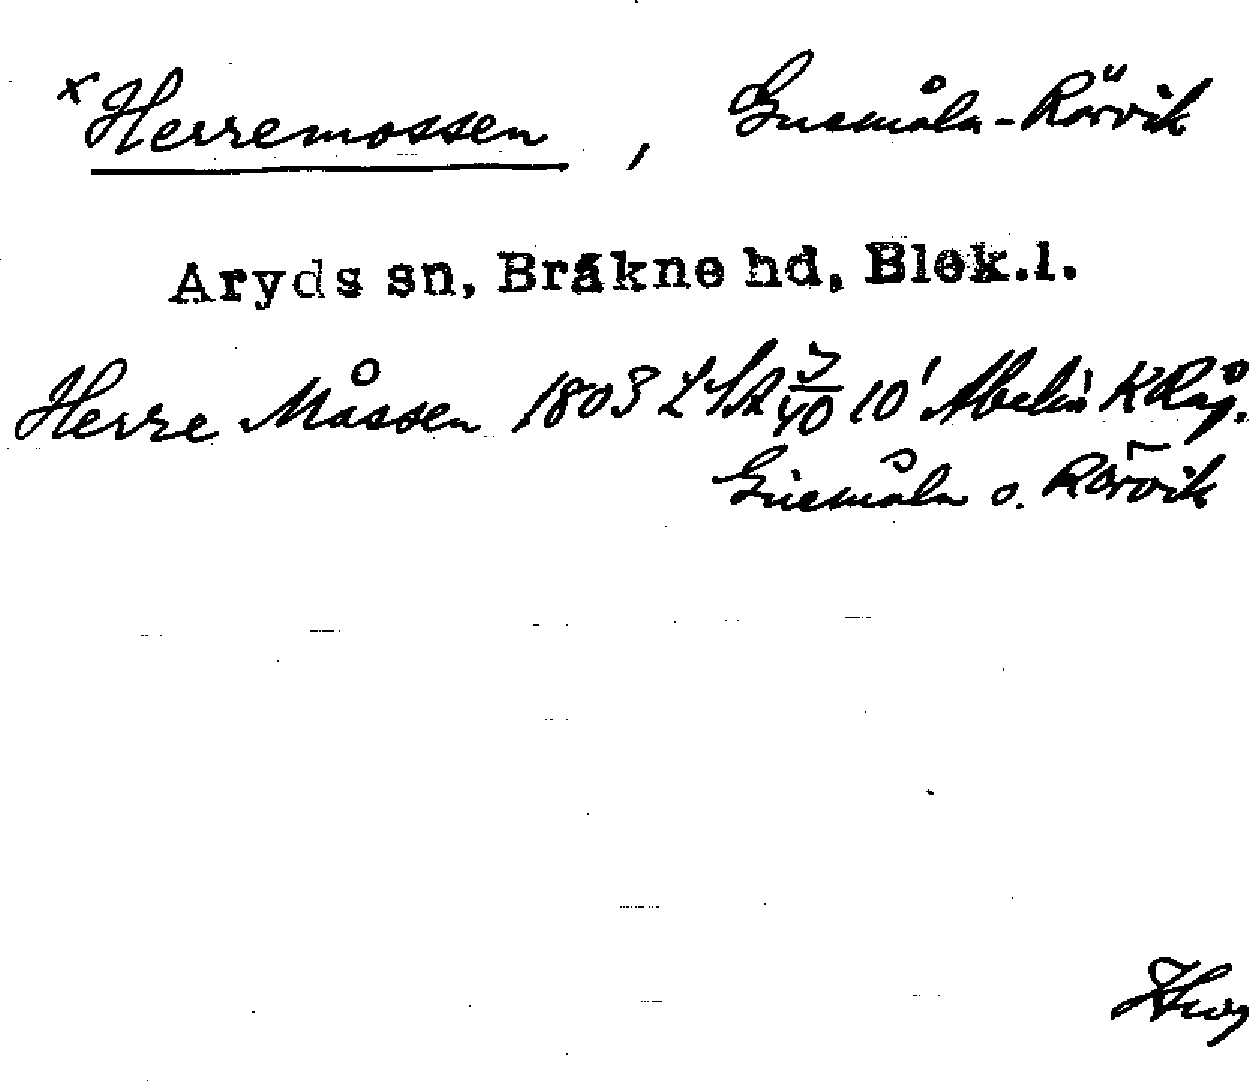 x Herremossen, Guemåla-Rörvik
Aryds sn, Bräkne hd, Blek.l.
Herre Måssen 1803 LSA 10' Abelin K Råg.
Guemåla o. Rörvik